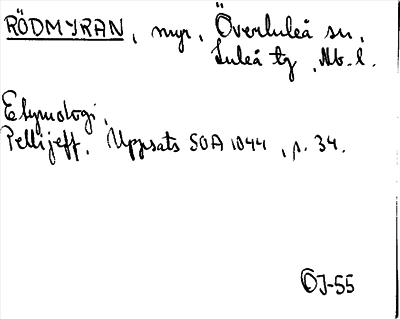 RÖDMYRAN, myr, Överluleå sn,
Luleå tg, Nb. l.
Etymologi.
Pellijeff, Uppsats SOA 1044, s. 34.
ÖJ-55